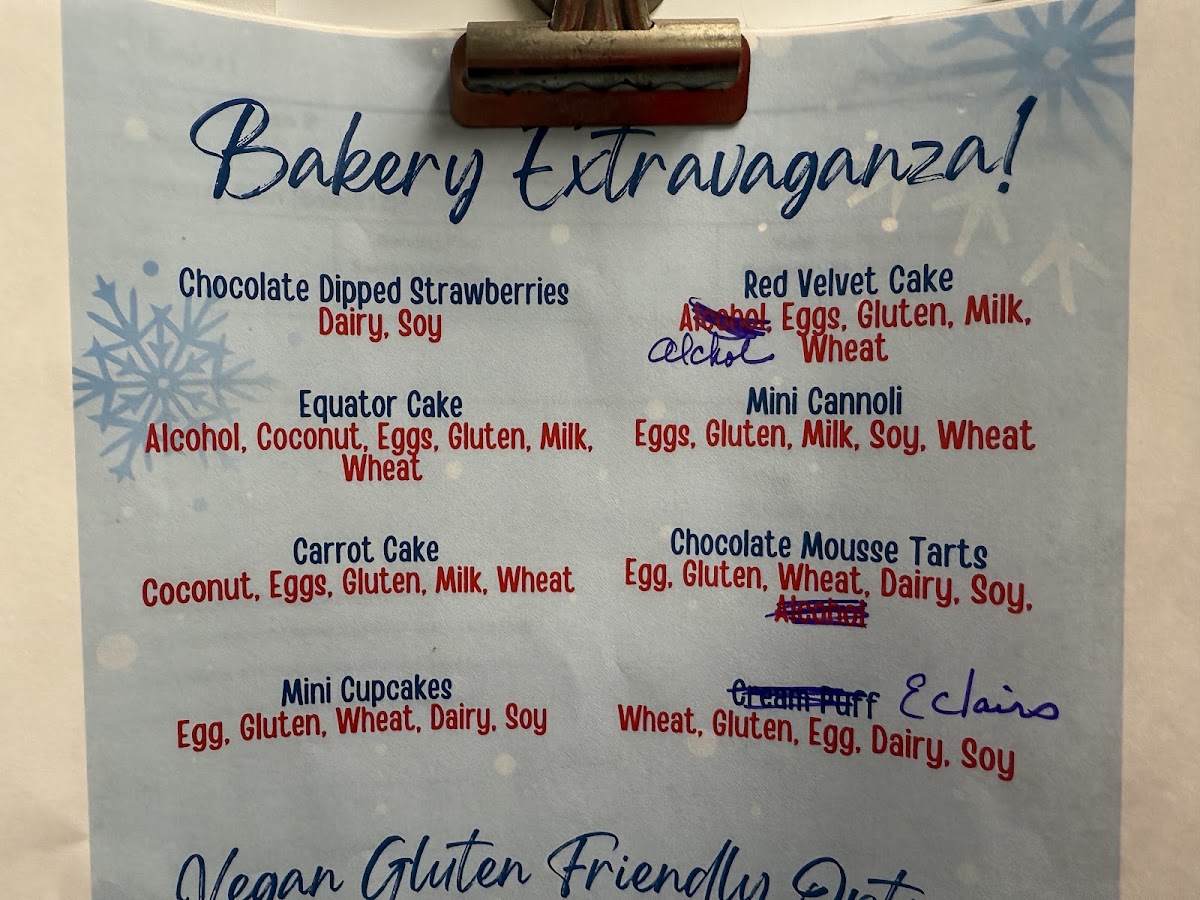 Bakery Extravaganza!
Chocolate Dipped Strawberries
Dairy, Soy
Red Velvet Cake
Alcohol, Eggs, Gluten, Milk,
alchol Wheat
Equator Cake
Alcohol, Coconut, Eggs, Gluten, Milk,
Wheat
Mini Cannoli
Eggs, Gluten, Milk, Soy, Wheat
Carrot Cake
Coconut, Eggs, Gluten, Milk, Wheat
Chocolate Mousse Tarts
Egg, Gluten, Wheat, Dairy, Soy,
Alcohol
Mini Cupcakes
Egg, Gluten, Wheat, Dairy, Soy
Cream Puff Eclairs
Wheat, Gluten, Egg, Dairy, Soy
Vegan Gluten Friendly